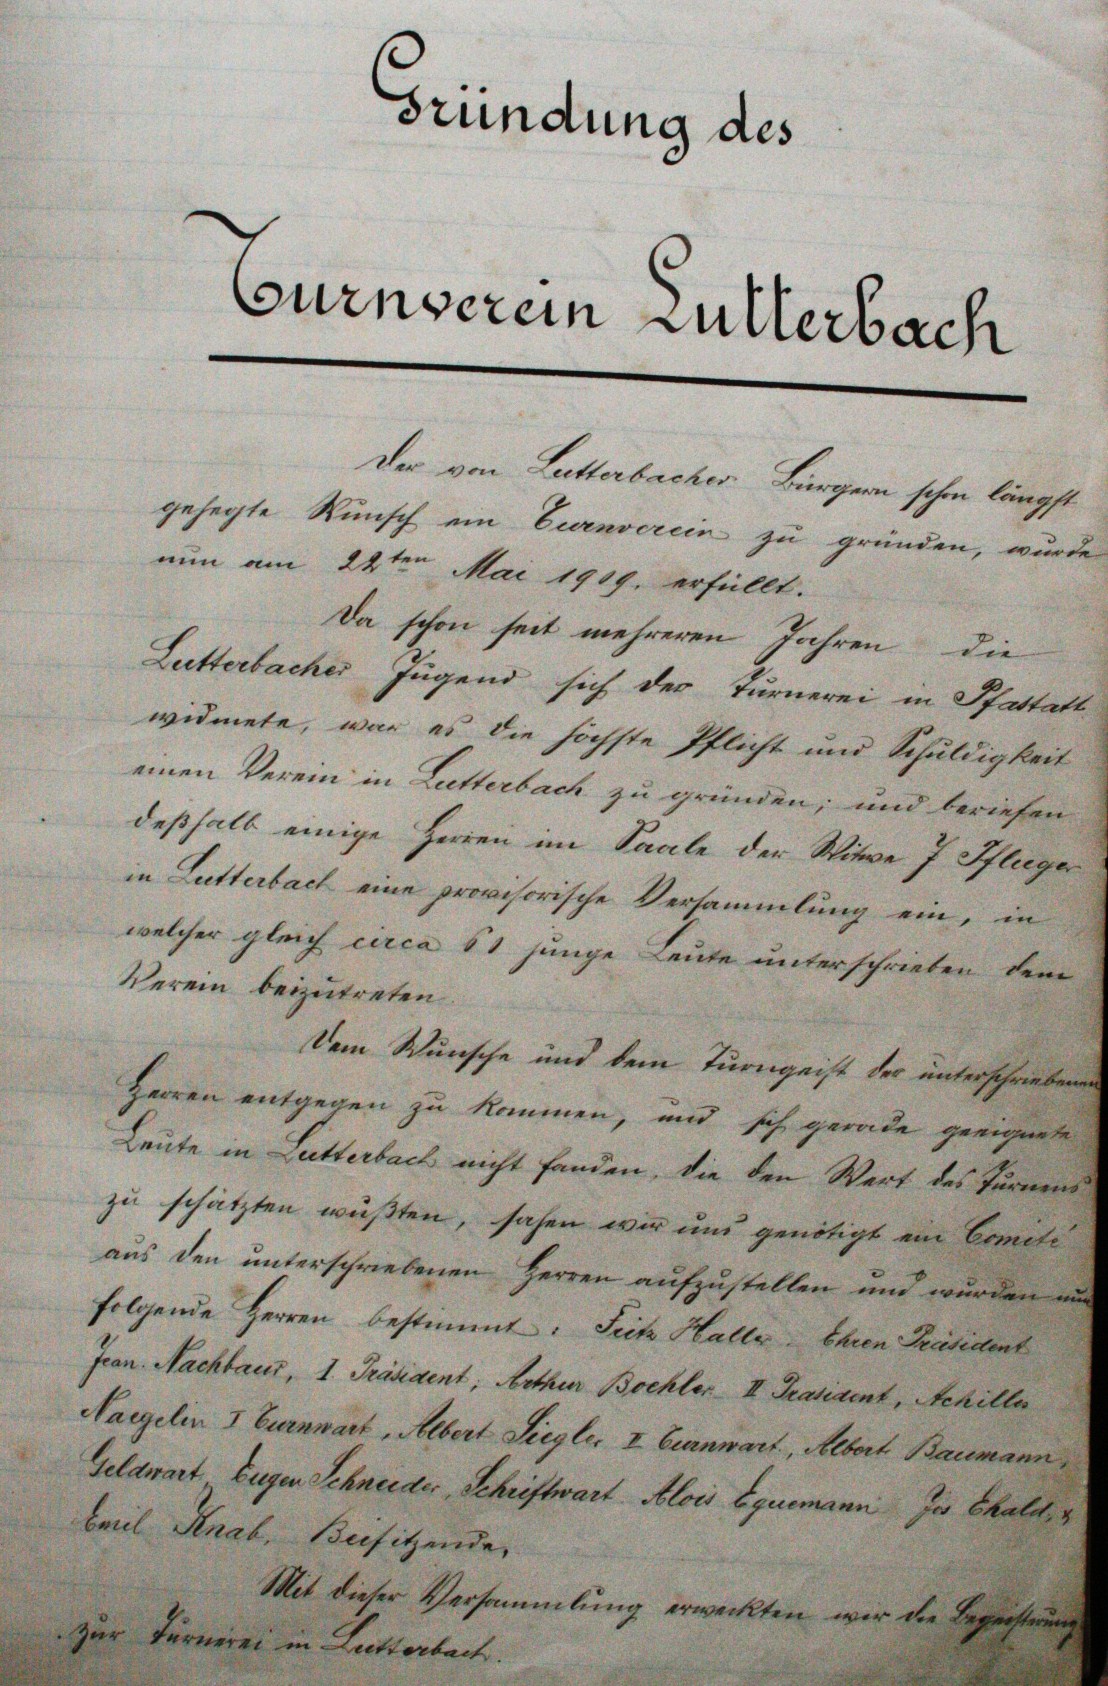 Gründung des
Turnverein Lutterbach
Der von Lutterbacher Bürgern schon längst
gehegte Wunsch ein Turnverein zu gründen, wurde
nun am 22ten Mai 1909. erfüllt.
Da schon seit mehreren Jahren die
Lutterbacher Jugend sich der Turnerei in Pfastatt
widmete, war es die höchste Pflicht und Schuldigkeit
einen Verein in Lutterbach zu gründen; und beriefen
deßhalb einige Herren im Saale der Witwe J Pfluger
in Lutterbach eine provisorische Versammlung ein, in
welcher gleich circa junge Leute unterschrieben dem
Verein beizutreten.
Dem Wunsche und dem Turngeist der unterschriebenen
Herren entgegen zu kommen, und sich gerade geeignete
Leute in Lutterbach nicht fanden, die den Wert des Turnens
zu schätzten wußten, sahen wir uns genötigt ein Comité
aus den unterschriebenen Herren aufzustellen und wurden nun
folgende Herren bestimmt: Fritz Haller Ehren Präsident
Jean. Nachbaur, I Präsident; Arthur Boehler II Prasident, Achilles
Naegelin I Turnwart, Albert Siegler II Turnwart, Albert Baumann,
Geldwart, Eugen Schneider, Schriftwart Alois Equemann Jos Ehald, &
Emil Knab, Beisitzende,
Mit dieser Versammlung erweckten wir die Begeisterung
zur Turnerei in Lutterbach.